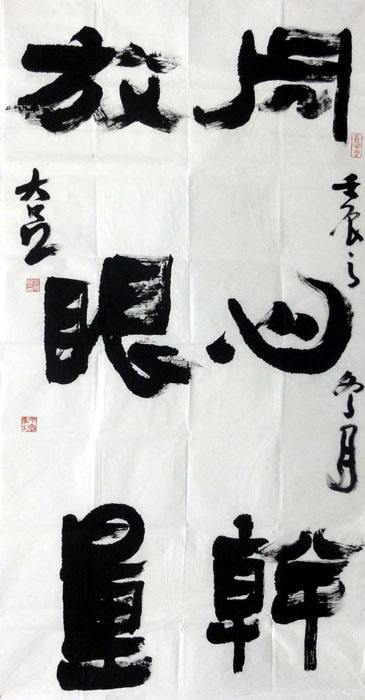 壬辰之冬月
用心幹
放眼量